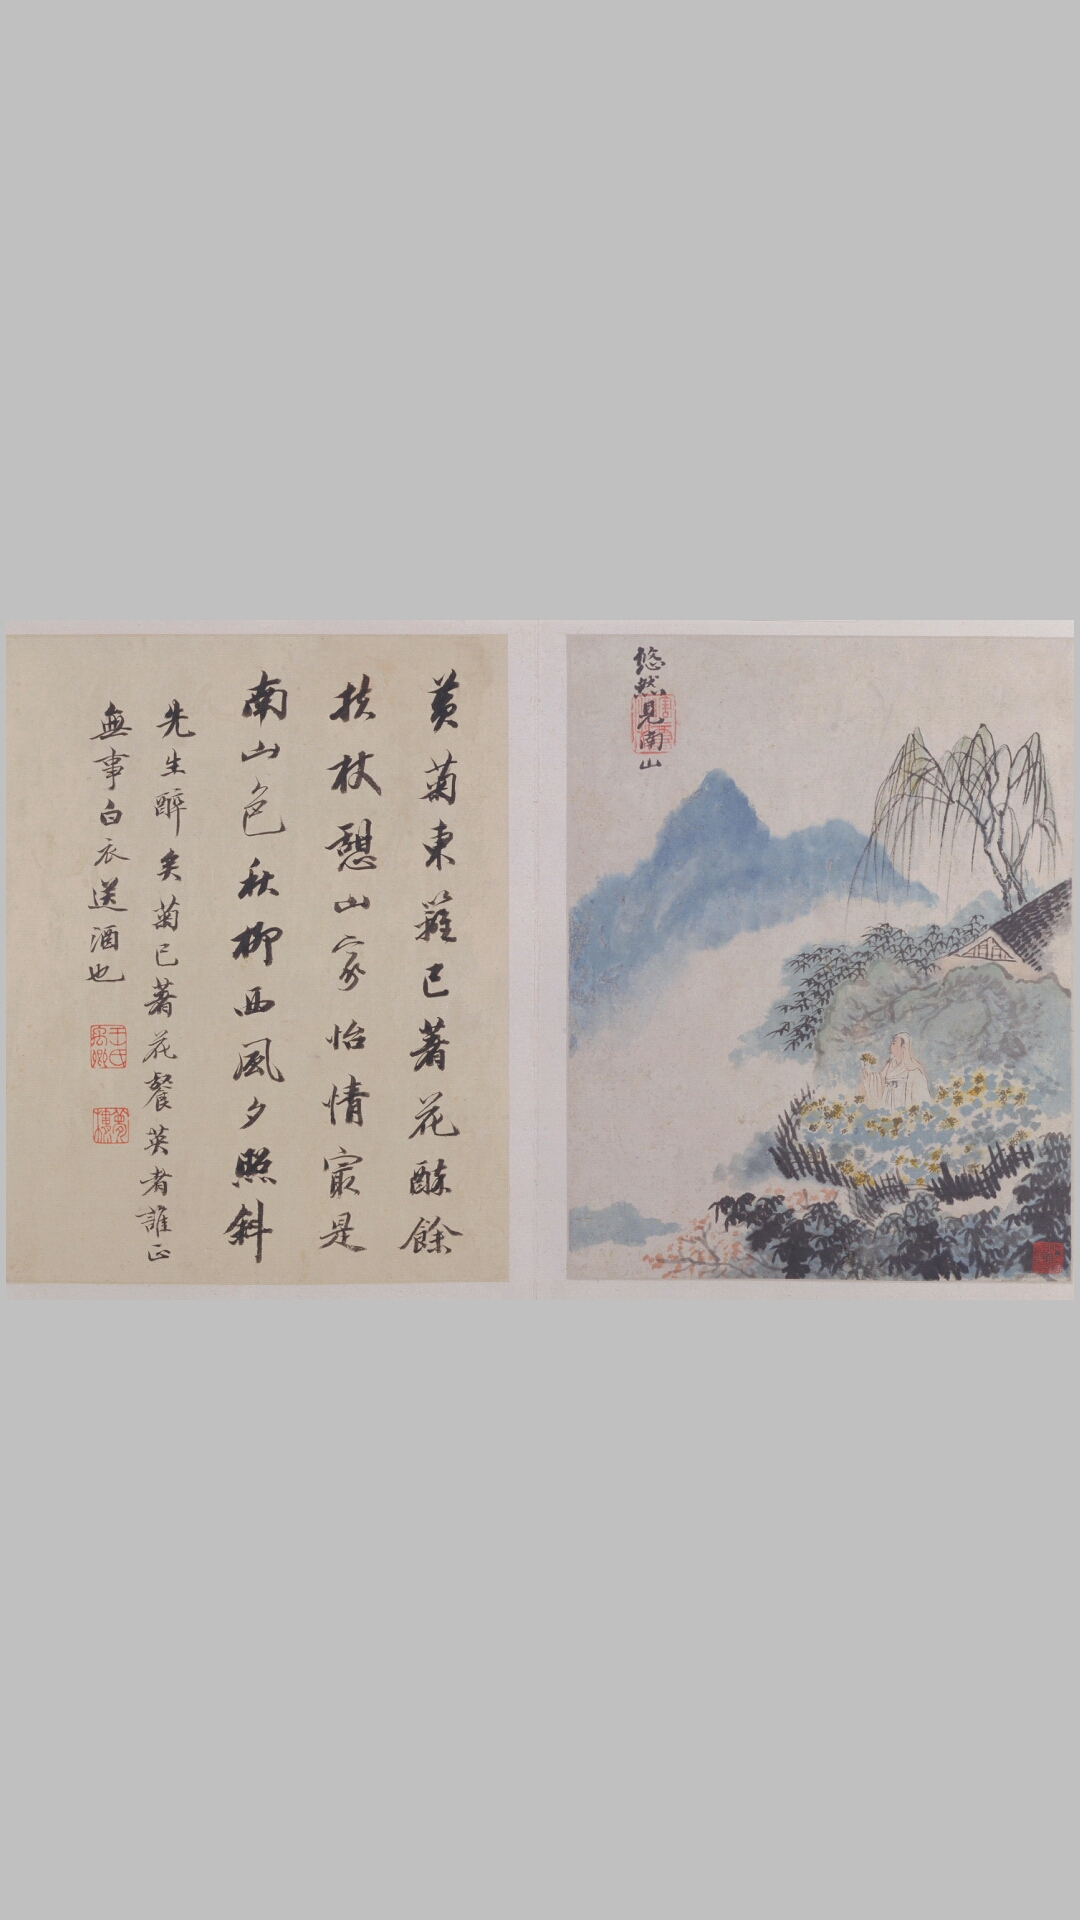 悠然見南山
黄菊東籬已著花酥餘
扶杖憩山家怡情寂是
南山色秋柳西風夕照斜
先生醉矣菊已著花餐英者誰正
無事白衣送酒也
王氏